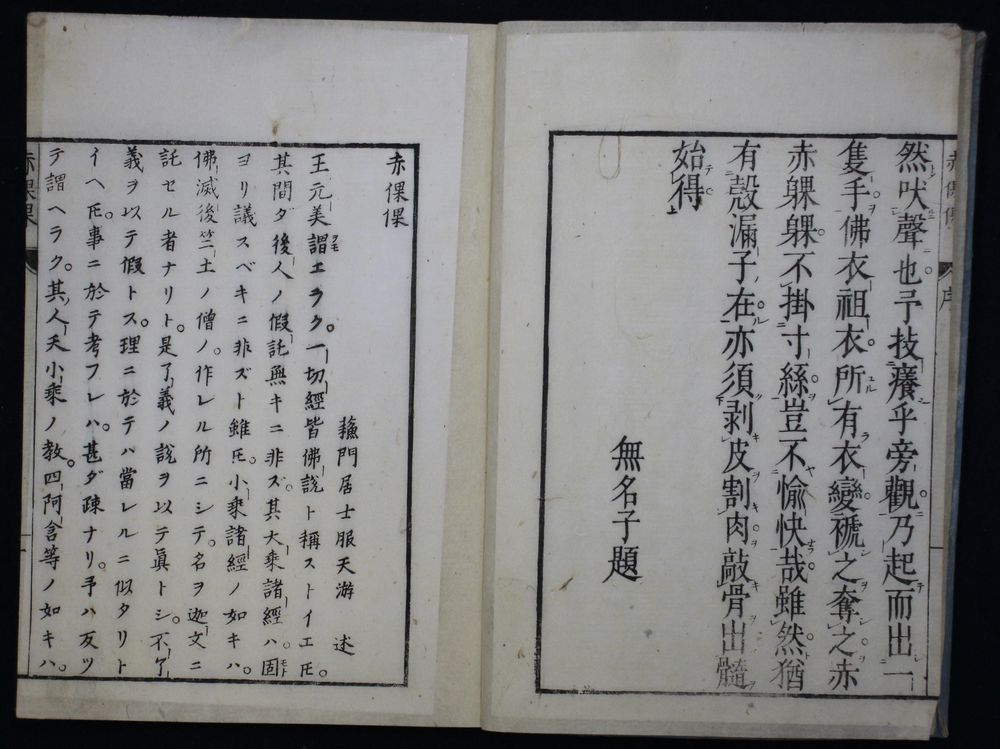 然吠聲也予技癢乎旁觀乃起而出一
隻手佛衣祖衣所有衣變褫之奪之赤
赤躶躶不掛寸絲豈不愉快哉雖然猶
有殼漏子在亦須剥皮割肉敲骨出髓
始得
無名子題
赤倮倮
蘓門居士服天游 述
王元美謂エラク。一切經皆佛説ト稱ストイエ𪜈。
其間ダ後人ノ假託無キニ非ズ。其大乘諸經ハ。固
ヨリ議スベキニ非ズト雖𪜈。小乘諸經ノ如キハ。
佛滅後竺土ノ僧ノ。作レル所ニシテ。名ヲ迦文ニ
託セル者ナリト。是了義ノ説ヲ以テ眞トシ。不了
義ヲ以テ假トス。理ニ於テハ當レルニ似タリト
イヘ𪜈。事ニ於テ考フレハ。甚ダ疎ナリ。予ハ反ツ
テ謂ヘラク。其人天小乘ノ教。四阿含等ノ如キハ。